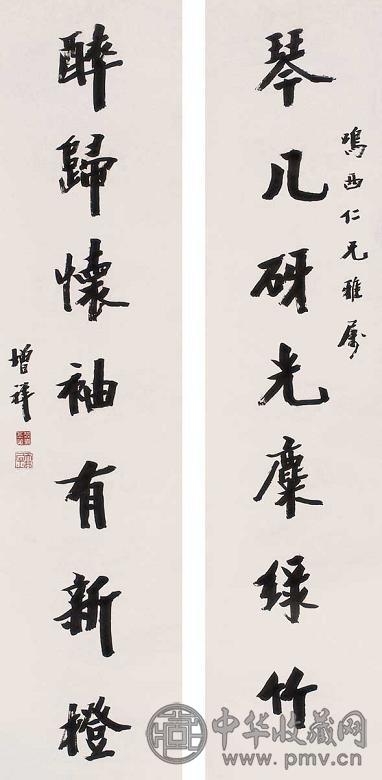 鳴西仁兄雅属
琴几研光麋緑竹
醉歸懷袖有新橙
增祥
中华收藏网
www.pmv.cn